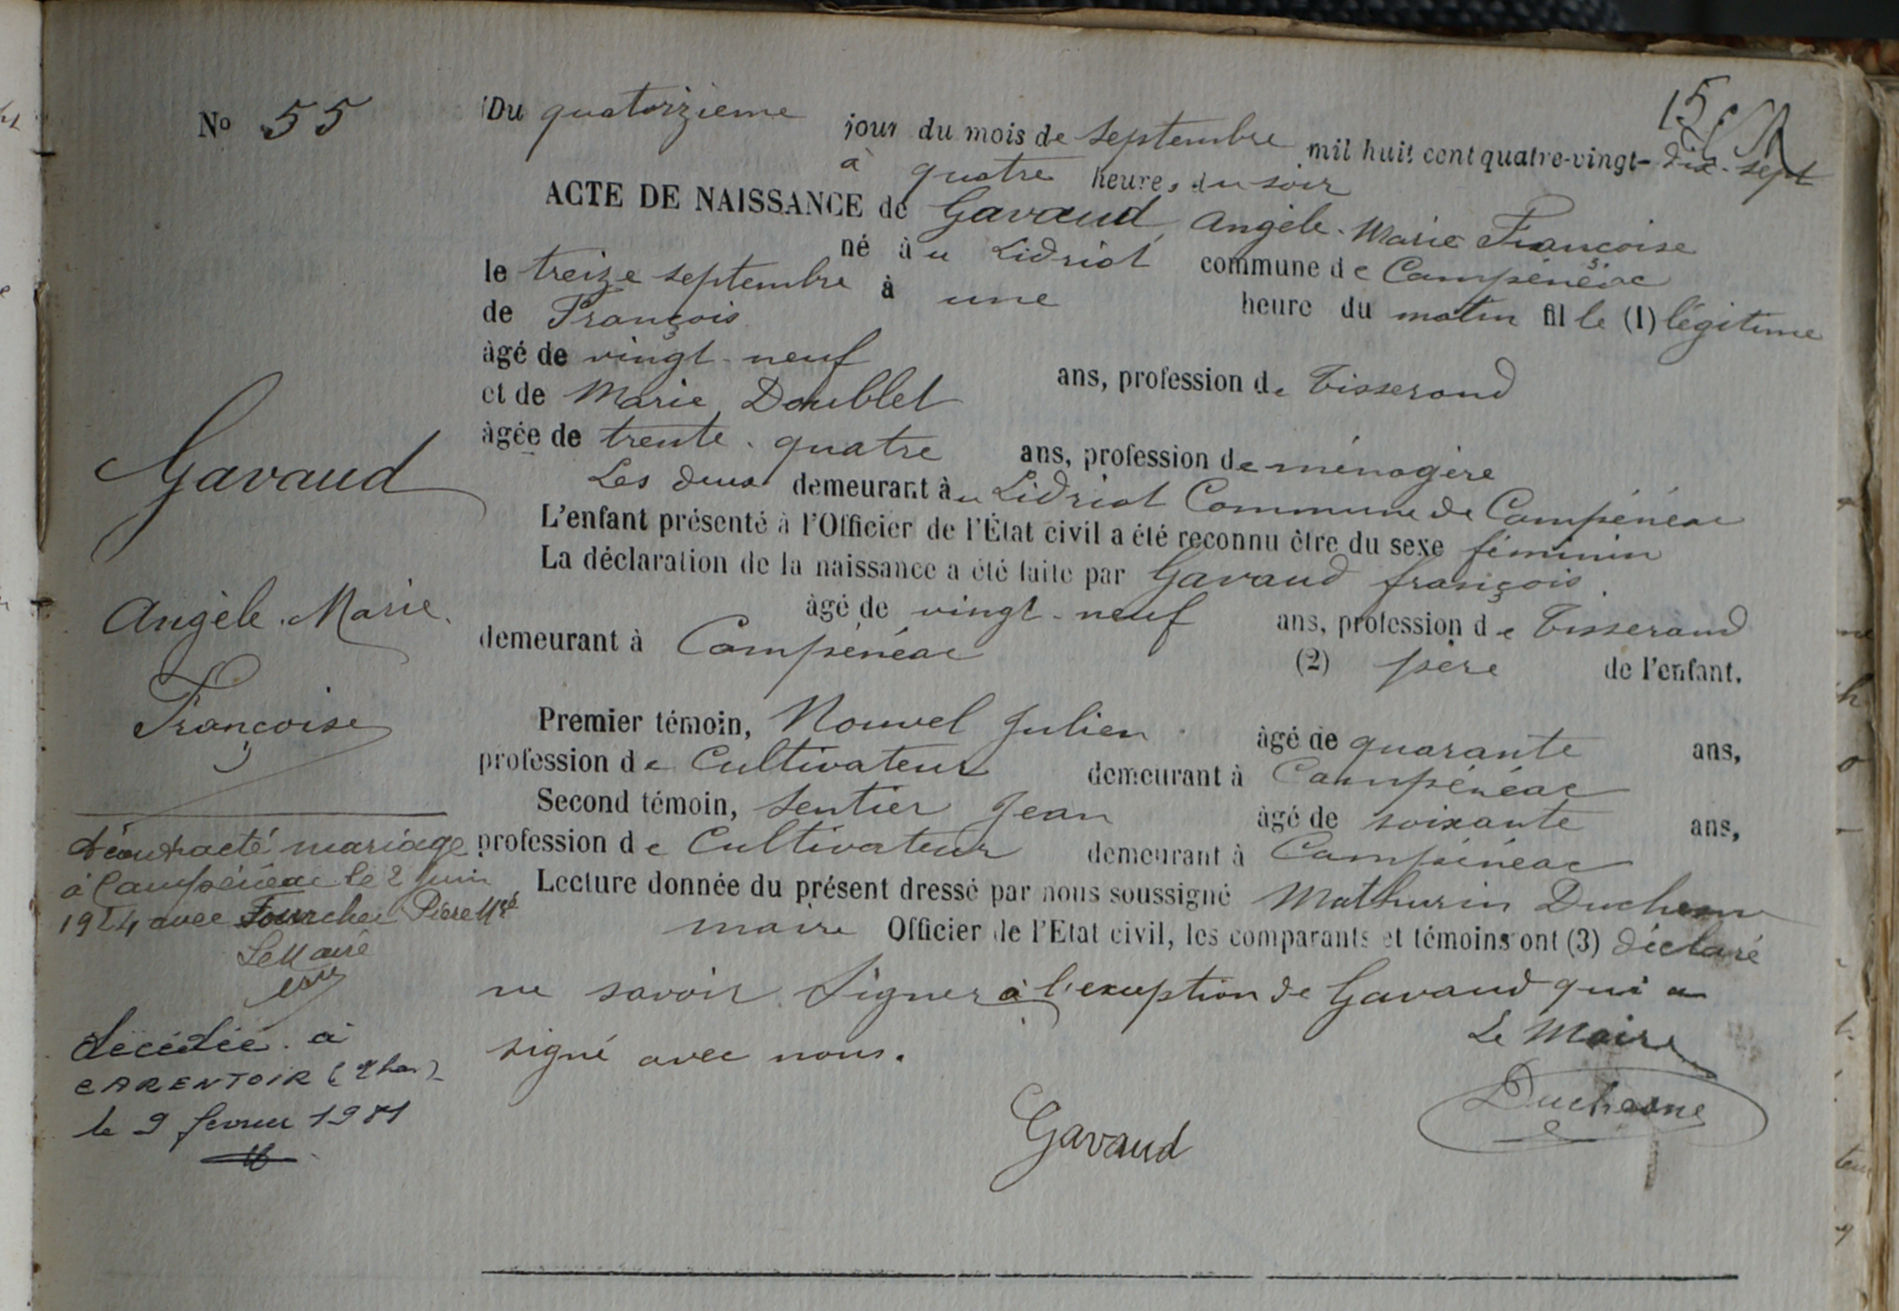 No 55
15
Du quatorzieme jour du mois de septembre mil huit cent quatre-vingt-dix-sept
à quatre heures du soir
ACTE DE NAISSANCE de Gavaud, Angèle-Marie Françoise
né au Lidriot commune de Campénéac
le treize septembre à une heure du matin fille (1) légitime
de François
âgé de vingt-neuf ans, profession de Tisserand
et de Marie Doublet
âgée de trente-quatre ans, profession de ménagère
Les deux demeurant au Lidriot Commune de Campénéac
L'enfant présenté à l'Officier de l'État civil a été reconnu être du sexe féminin
La déclaration de la naissance a été faite par Gavaud françois
âgé de vingt-neuf ans, profession de Tisserand
demeurant à Campénéac (2) père de l'enfant.
Premier témoin, Nouvel Julien âgé de quarante ans,
profession de Cultivateur demeurant à Campénéac
Second témoin, Sentier Jean âgé de soixante ans,
profession de Cultivateur demeurant à Campénéac
Lecture donnée du présent dressé par nous soussigné Mathurin Duchesne
maire Officier de l'Etat civil, les comparants et témoins ont (3) déclaré
ne savoir signer à l'exception de Gavaud qui a
signé avec nous.
Le Maire
Duchesne
Gavaud
Gavaud
Angèle-Marie
Françoise
A contracté mariage
à Campénéac le 2 Juin
1924 avec Pierre
Le Maire
décédée à
CARENTOIR
le 9 février 1981